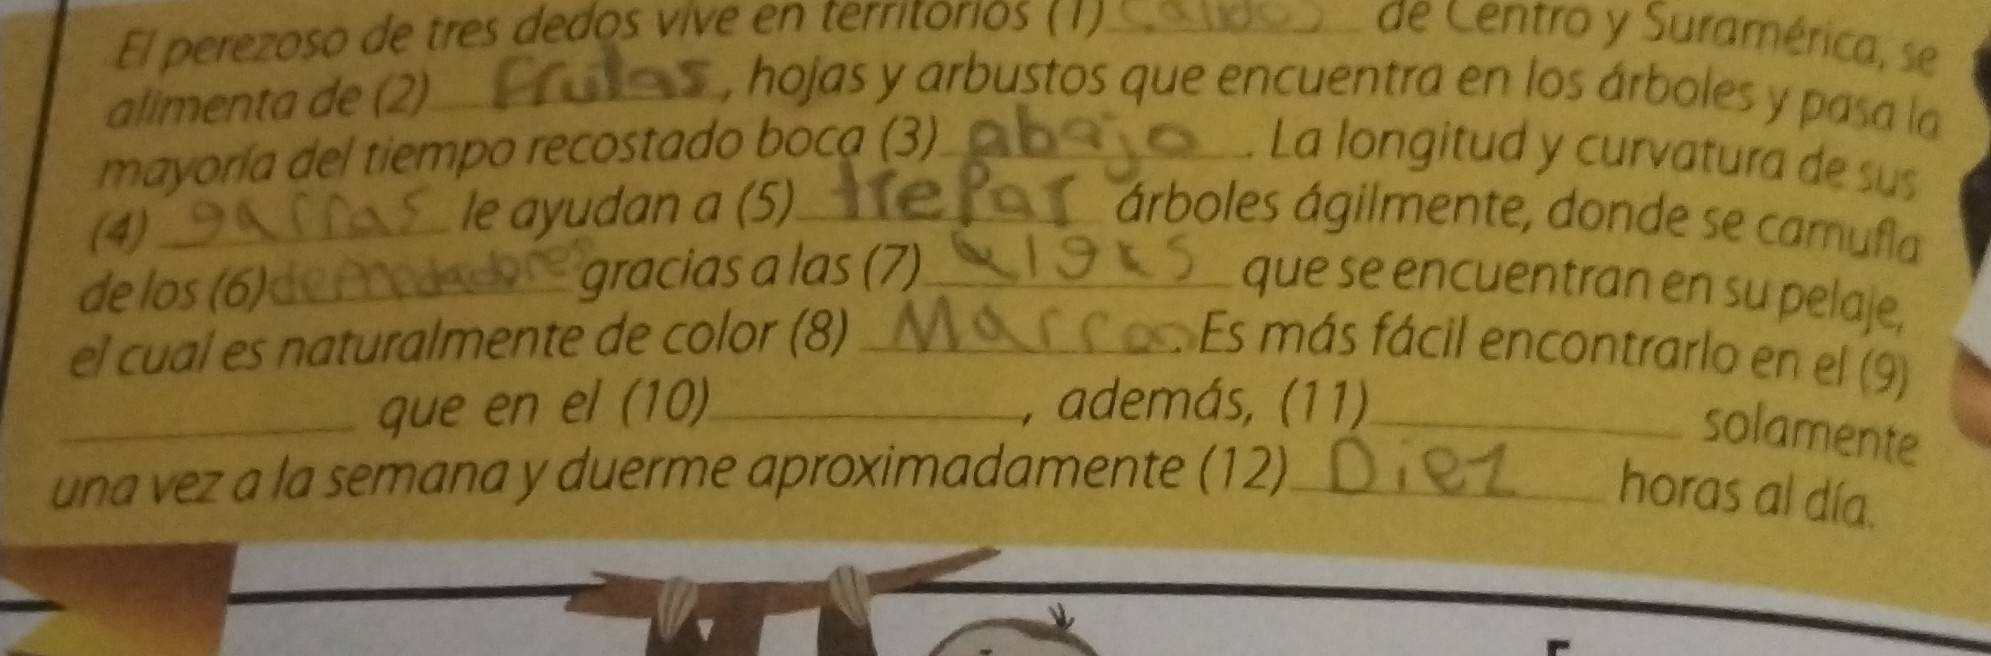 El perezoso de tres dedos vive en territorios (1) calidos de Centro y Suramérica, se
alimenta de (2) Frutas, hojas y arbustos que encuentra en los árboles y pasa la
mayoría del tiempo recostado boca (3) abajo. La longitud y curvatura de sus
(4) garras le ayudan a (5) trepar árboles ágilmente, donde se camufla
de los (6) gracias a las (7) algas que se encuentran en su pelaje,
el cual es naturalmente de color (8) Marron. Es más fácil encontrarlo en el (9)
que en el (10) , además, (11) solamente
una vez a la semana y duerme aproximadamente (12) Diez horas al día.